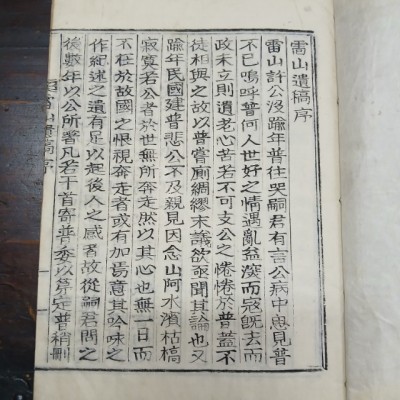 雷山遺稿序
雷山許公沒踰年普往哭嗣君有言公病中思見普
不已嗚呼普何人世好之情遇亂益深而寇旣去而
政未立則遺老心苦若不可支公之惓惓於普蓋不
徒相與之故以普嘗廁綢繆末議欲亟聞其論也
踰年民國建普悲公不及親見因念山阿水濱枯槁
寂寞若公者於世無所奔走然以其心也無一日而
不在於故國之恨視奔走者或有加焉意其吟咏之
作紀述之遺有足以起後人之感者故從嗣君問之
後數年以公所著凡若干首寄普委以第定普稍刪
雷山遺稿序